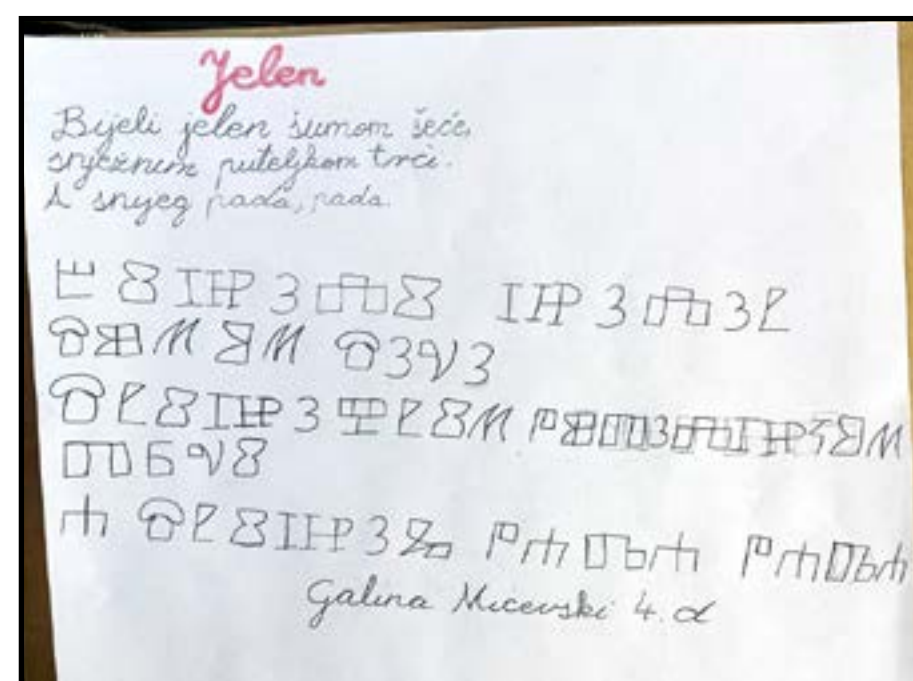 Jelen
Bijeli jelen šumom šeće,
snježnim puteljkom trči.
A snijeg pada, pada.
ⰁⰋⰌⰅⰎⰋ ⰌⰅⰎⰅⰐ
ⰔⰖⰏⰑⰏ ⰔⰅⰝⰅ
ⰔⰐⰋⰌⰅⰆⰐⰋⰏ ⰒⰖⰕⰅⰎⰌⰍⰑⰏ
ⰕⰓⰝⰋ
Ⰰ ⰔⰐⰋⰌⰅⰃ ⰒⰀⰄⰀ ⰒⰀⰄⰀ
Galina Micevski 4. d